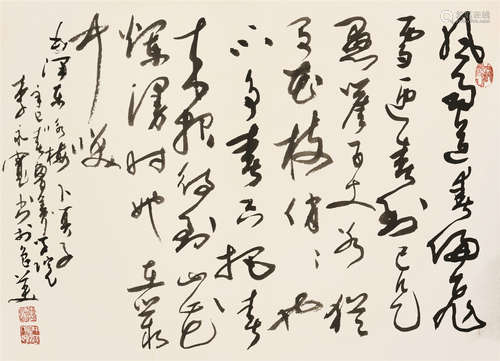 风雨送春归飛
雪迎春到已是
悬崖百丈冰犹
有花枝俏〻也
不争春只把春
来报待到山花
烂漫时她在丛
中笑
毛泽东咏梅卜算子
辛巳春
李永